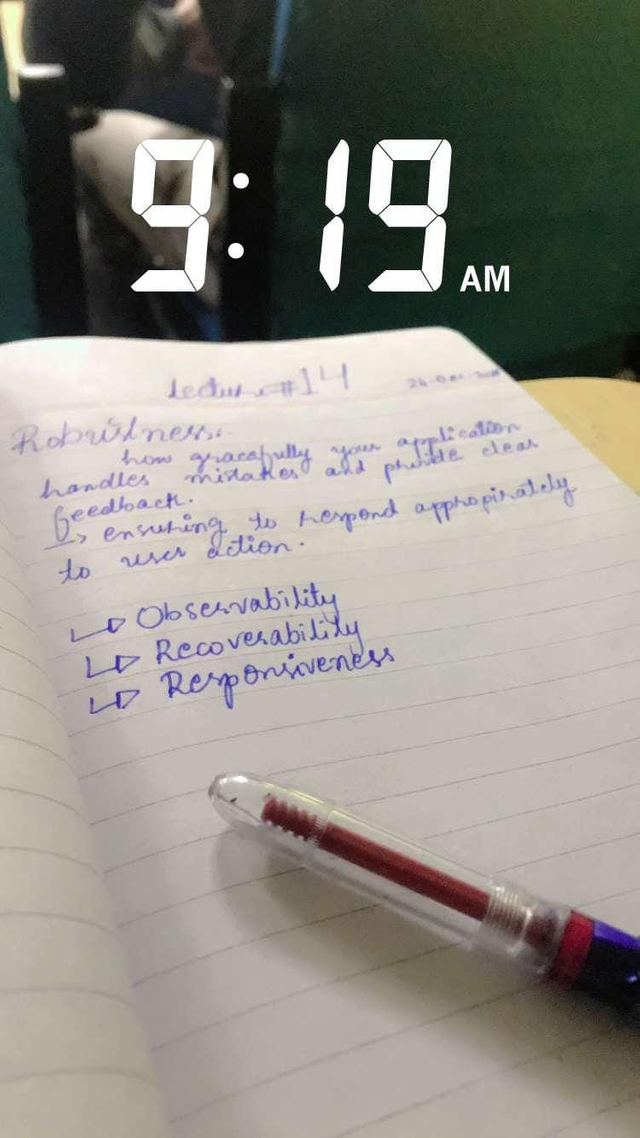 9:19 AM
Lecture #14
Robustness:-
how gracefully your application
handles mistakes and provide clear
feedback.
↳ ensuring to respond appropirately
to user action.
↳ Observability
↳ Recoverability
↳ Responsiveness